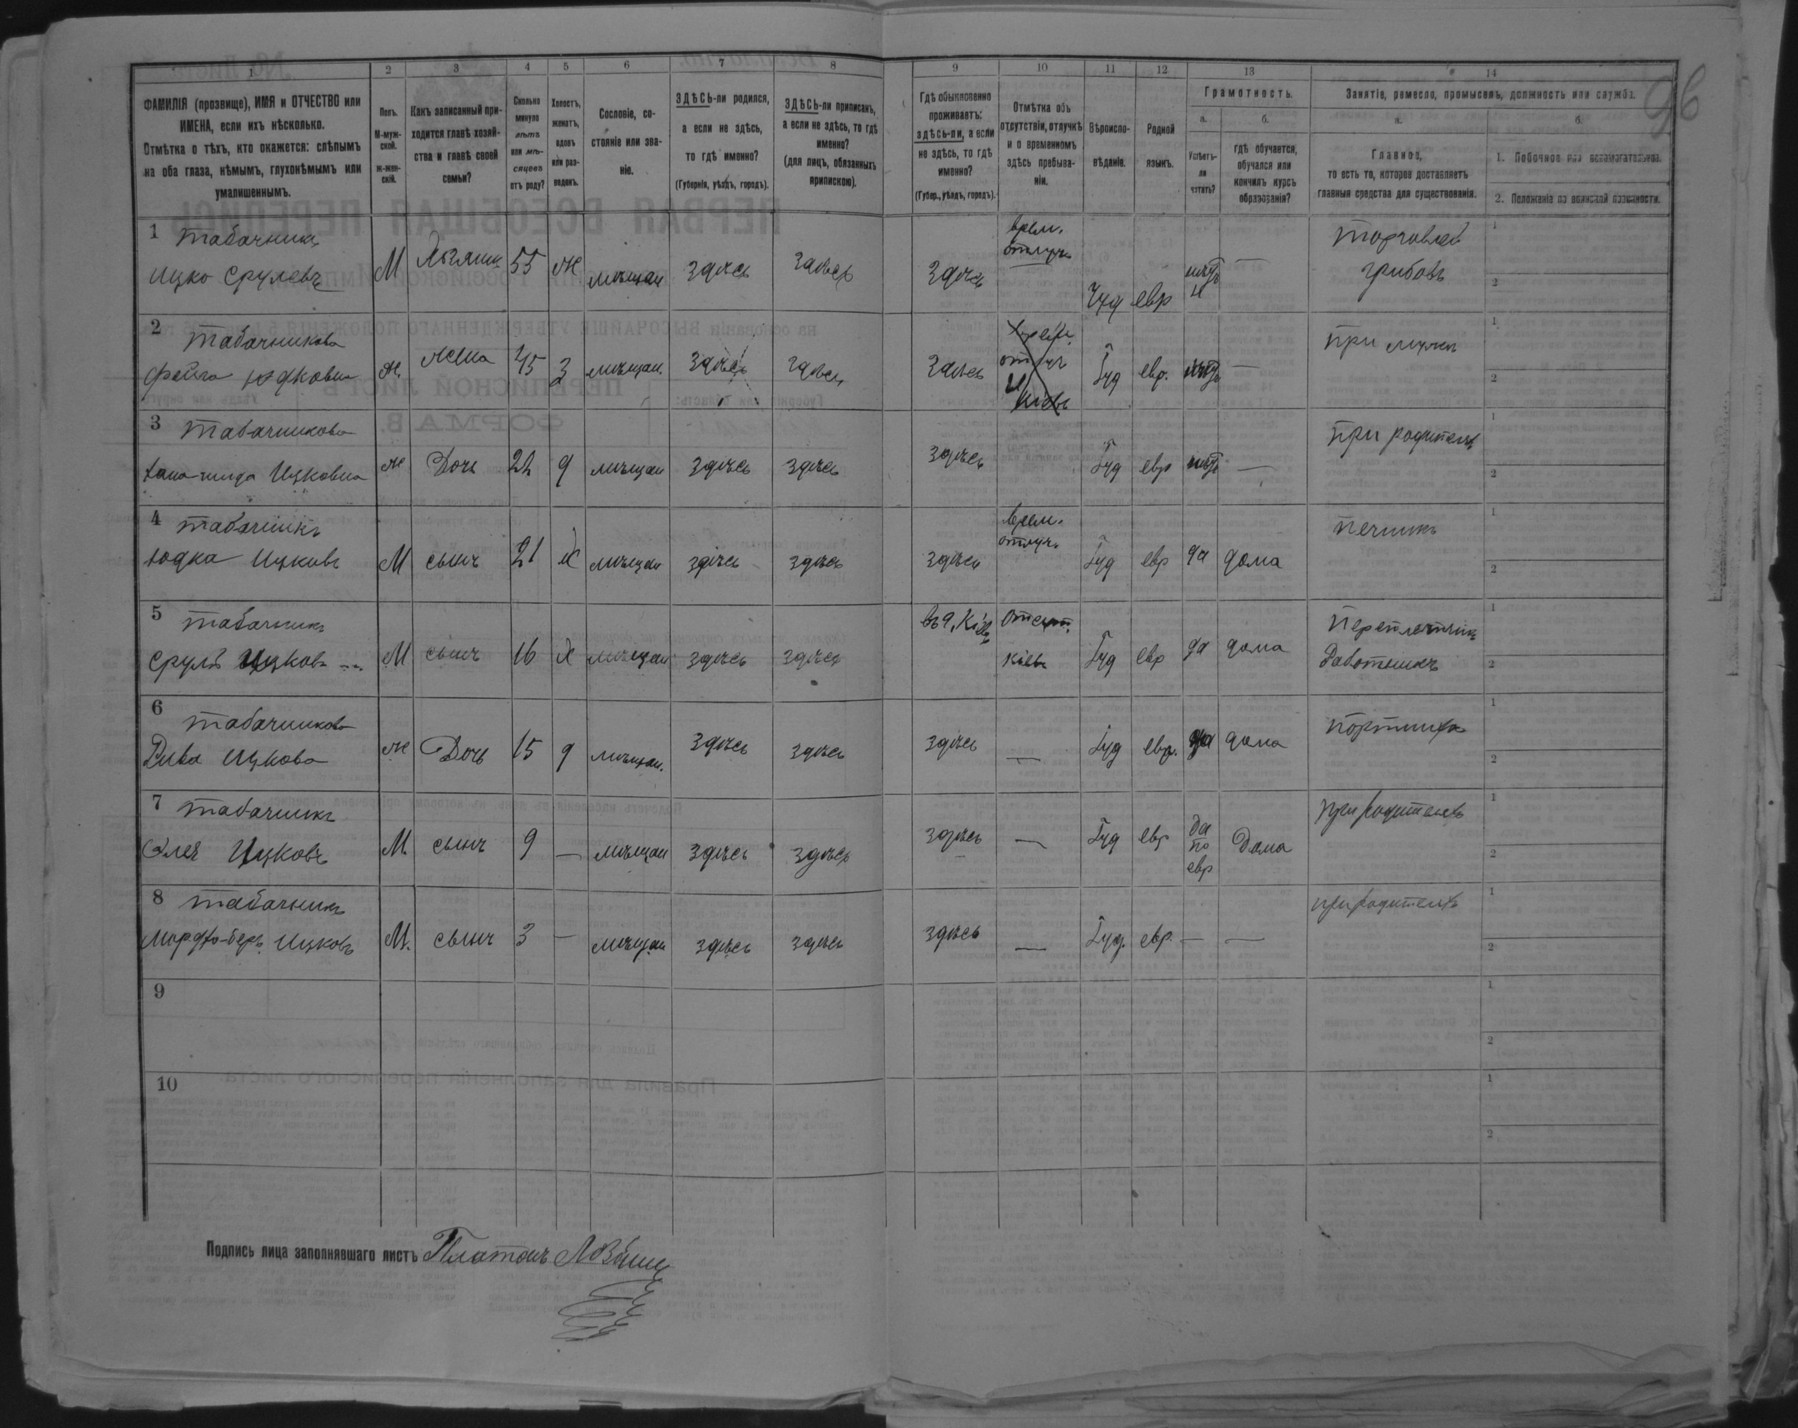 1 2 3 4 5 6 7 8 9 10 11 12 13 14
ФАМИЛІЯ (прозвище), ИМЯ и ОТЧЕСТВО или
ИМЕНА, если ихъ нѣсколько.
Отмѣтка о тѣхъ, кто окажется: слѣпымъ
на оба глаза, нѣмымъ, глухонѣмымъ или
умалишеннымъ.
Полъ.
М-муж-
ской.
ж-жен-
скій.
Какъ записанный при-
ходится главѣ хозяй-
ства и главѣ своей
семьи?
Сколько
минуло
лѣтъ
или мѣ-
сяцевъ
отъ роду?
Холостъ,
женатъ,
вдовъ
или раз-
веденъ.
Сословіе, со-
стояніе или зва-
ніе.
ЗДѢСЬ-ли родился,
а если не здѣсь,
то гдѣ именно?
(Губернія, уѣздъ, городъ).
ЗДѢСЬ-ли приписанъ,
а если не здѣсь, то гдѣ
именно?
(для лицъ, обязанныхъ
припискою).
Гдѣ обыкновенно
проживаетъ:
здѣсь-ли, а если
не здѣсь, то гдѣ
именно?
(Губер., уѣздъ, городъ).
Отмѣтка объ
отсутствіи, отлучкѣ
и о временномъ
здѣсь пребыва-
ніи.
Вѣроиспо-
вѣданіе.
Родной
языкъ.
Грамотность.
а. б.
Умѣетъ-
ли
читать?
гдѣ обучается,
обучался или
кончилъ курсъ
образованія?
Занятіе, ремесло, промыселъ, должность или служба.
а. б.
Главное,
то есть то, которое доставляетъ
главныя средства для существованія.
1. Побочное или вспомогательное.
2. Положеніе по воинской повинности.
96
1 Табачникъ
Ицко Срулевъ М Хозяин 55 ж мѣщан здѣсь здѣсь здѣсь врем. отлуч Іуд евр торговлей грибовъ
2 Табачникова
Фейга Юдковна ж. жена 45 З мѣщан. здѣсь здѣсь здѣсь Іуд евр. — при мужѣ
3 Табачникова
Ицковна ж Дочь 22 д мѣщан здѣсь здѣсь здѣсь Іуд евр — при родителѣ
4 Табачникъ
Юдка Ицковъ М сынъ 21 х мѣщан здѣсь здѣсь здѣсь врем. отлуч Іуд евр да дома печникъ
5 Табачникъ
Сруль Ицковъ М сынъ 16 х мѣщан здѣсь здѣсь въ г. Кіевѣ Іуд евр да дома Переплетчикъ Работникъ
6 Табачникова
Рива Ицкова ж Дочь 15 д мѣщан. здѣсь здѣсь здѣсь — Іуд евр. да дома портниха
7 Табачникъ
Ицковъ М. сынъ 9 — мѣщан здѣсь здѣсь здѣсь — Іуд евр да по евр Дома при родителѣ
8 Табачникъ
Мордко-Беръ Ицковъ М. сынъ 3 — мѣщан здѣсь здѣсь здѣсь — Іуд. евр. — — при родителѣ
9
10
Подпись лица заполнявшаго листъ Платонъ